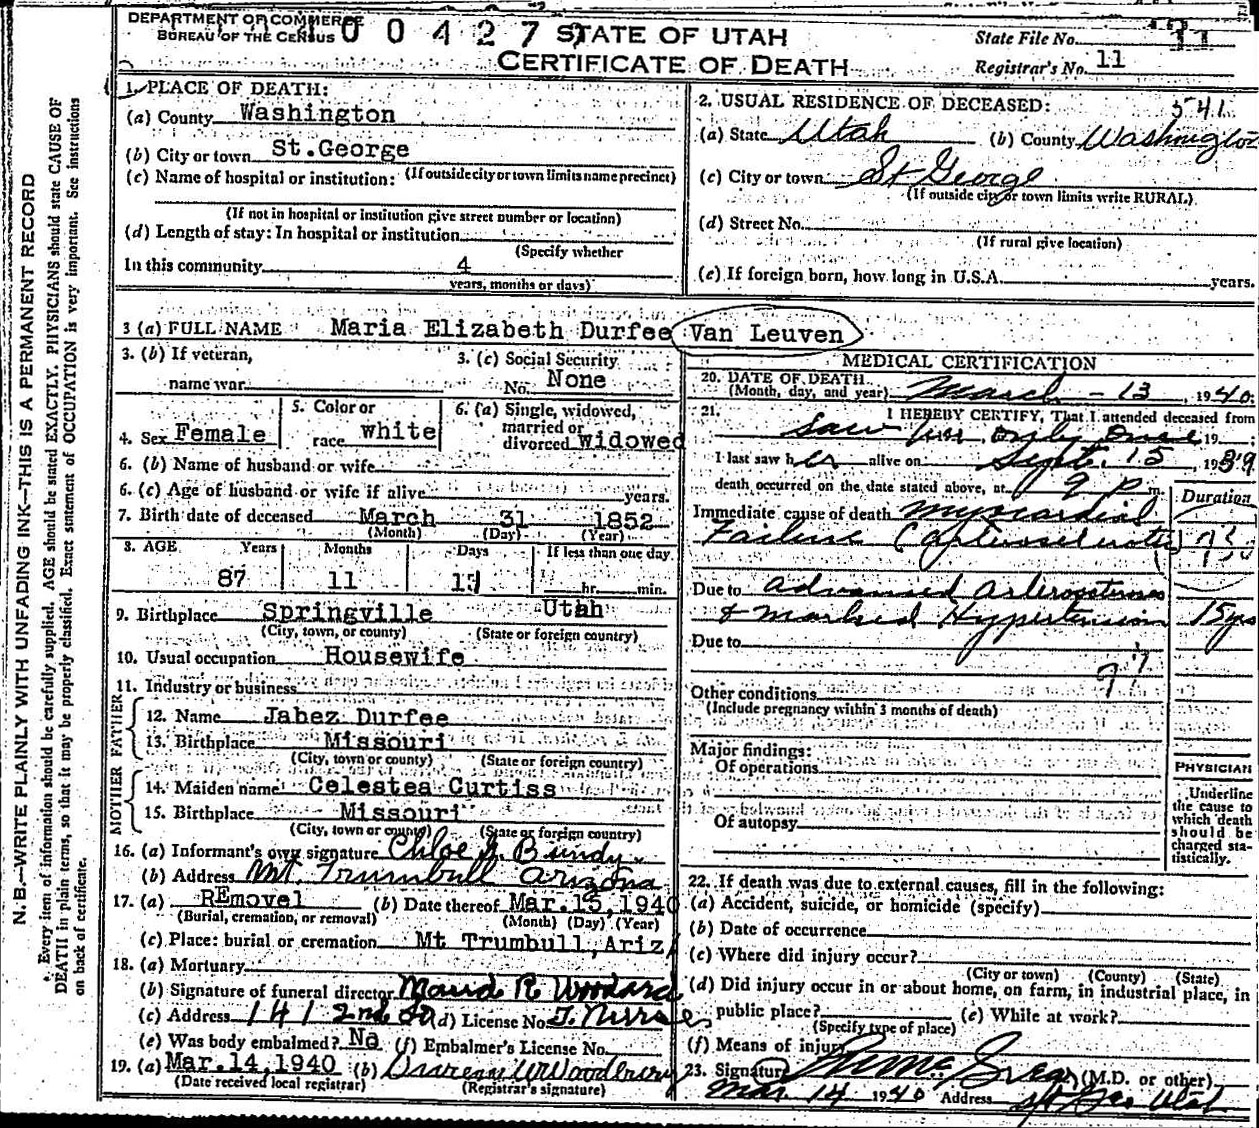 DEPARTMENT OF COMMERCE
BUREAU OF THE CENSUS
0 0 4 2 7
STATE OF UTAH
CERTIFICATE OF DEATH
State File No. 11
Registrar's No. 11
N. B.—WRITE PLAINLY WITH UNFADING INK—THIS IS A PERMANENT RECORD
Every item of information should be carefully supplied. AGE should be stated EXACTLY. PHYSICIANS should state CAUSE OF
DEATH in plain terms, so that it may be properly classified. Exact statement of OCCUPATION is very important. See instructions
on back of certificate.
1. PLACE OF DEATH:
(a) County Washington
(b) City or town St.George
(c) Name of hospital or institution: (If outside city or town limits name precinct)
(If not in hospital or institution give street number or location)
(d) Length of stay: In hospital or institution
(Specify whether
In this community 4
years, months or days)
2. USUAL RESIDENCE OF DECEASED: 541
(a) State Utah (b) County Washington
(c) City or town St George
(If outside city or town limits write RURAL)
(d) Street No.
(If rural give location)
(e) If foreign born, how long in U.S.A. years.
3 (a) FULL NAME Maria Elizabeth Durfee Van Leuven
3. (b) If veteran,
name war
3. (c) Social Security
No. None
4. Sex Female
5. Color or
race white
6. (a) Single, widowed,
married or
divorced widowed
6. (b) Name of husband or wife
6. (c) Age of husband or wife if alive years.
7. Birth date of deceased March 31 1852
(Month) (Day) (Year)
8. AGE Years Months Days If less than one day
87 11 hr. min.
9. Birthplace Springville Utah
(City, town, or county) (State or foreign country)
10. Usual occupation Housewife
11. Industry or business
FATHER
12. Name Jabez Durfee
13. Birthplace Missouri
(City, town or county) (State or foreign country)
MOTHER
14. Maiden name Celestea Curtiss
15. Birthplace Missouri
(City, town or county) (State or foreign country)
16. (a) Informant's own signature Chloe Bundy
(b) Address Mt. Trumbull Arizona
17. (a) REmovel (b) Date thereof Mar.15,1940
(Burial, cremation, or removal) (Month) (Day) (Year)
(c) Place: burial or cremation Mt Trumbull,Ariz
18. (a) Mortuary
(b) Signature of funeral director Maud R Woodard
(c) Address 141 2nd (d) License No.
(e) Was body embalmed? No (f) Embalmer's License No.
19. (a) Mar.14,1940 (b) Woodbury
(Date received local registrar) (Registrar's signature)
MEDICAL CERTIFICATION
20. DATE OF DEATH
(Month, day, and year) March - 13, 1940
21. I HEREBY CERTIFY, That I attended deceased from
Saw her only once 19 :
I last saw her alive on Sept. 15, 1939
death occurred on the date stated above, at 9 P m.
Duration
Immediate cause of death Myocardial
Failure
Due to Advanced Arteriosclerosis
& marked Hypertension 15 yrs
Due to
Other conditions
(Include pregnancy within 3 months of death)
Major findings:
Of operations
Of autopsy
PHYSICIAN
Underline
the cause to
which death
should be
charged sta-
tistically.
22. If death was due to external causes, fill in the following:
(a) Accident, suicide, or homicide (specify)
(b) Date of occurrence
(c) Where did injury occur?
(City or town) (County) (State)
(d) Did injury occur in or about home, on farm, in industrial place, in
public place? (e) While at work?
(Specify type of place)
(f) Means of injury
23. Signature (M.D. or other)
Mar 14 1940 Address St Geo Utah